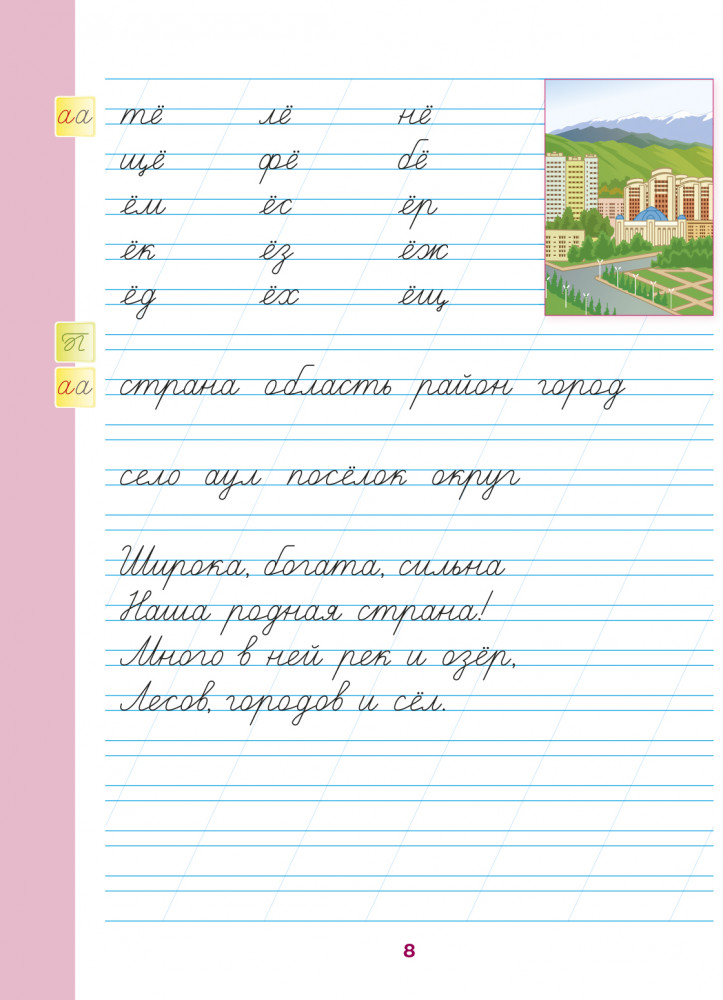 аа тё лё нё
щё фё бё
ём ёс ёр
ёк ёз ёж
ёд ёх ёщ
П
аа страна область район город
село аул посёлок округ
Широка, богата, сильна
Наша родная страна!
Много в ней рек и озёр,
Лесов, городов и сёл.
8